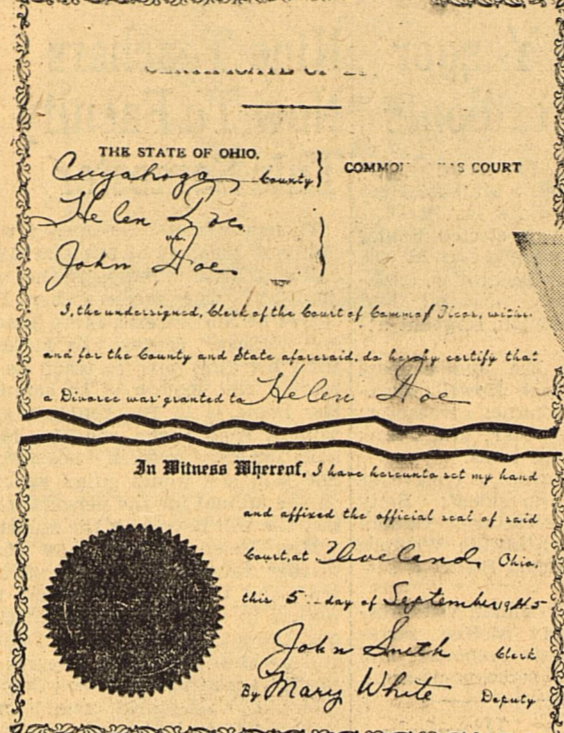 CERTIFICATE OF
THE STATE OF OHIO,
Cuyahoga County
COMMON PLEAS COURT
Helen Doe
vs
John Doe
I, the undersigned, Clerk of the Court of Common Pleas, within
and for the County and State aforesaid, do hereby certify that
a Divorce was granted to Helen Doe
In Witness Whereof, I have hereunto set my hand
and affixed the official seal of said
Court, at Cleveland, Ohio,
this 5 day of September 1945
John Smith Clerk
By Mary White Deputy